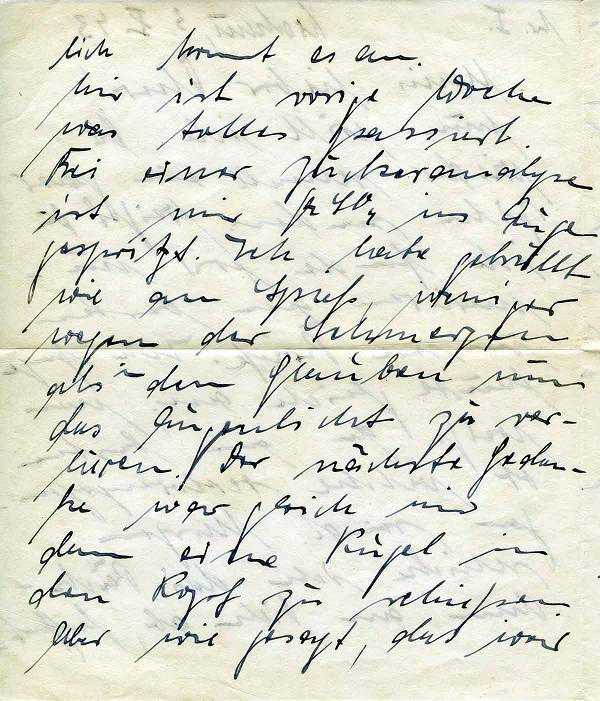 lich kommt es an.
Mir ist vorige Woche
was tolles passiert.
Bei einer Zuckeranalyse
ist mir H₂SO₄ ins Auge
gespritzt. Ich habe gebrüllt
wie am Spieß, weniger
wegen der Schmerzen
als in dem Glauben nun
das Augenlicht zu ver-
lieren. Der nächste Gedan-
ke war gleich mir
dann eine Kugel in
den Kopf zu schießen
Aber wie gesagt, das war